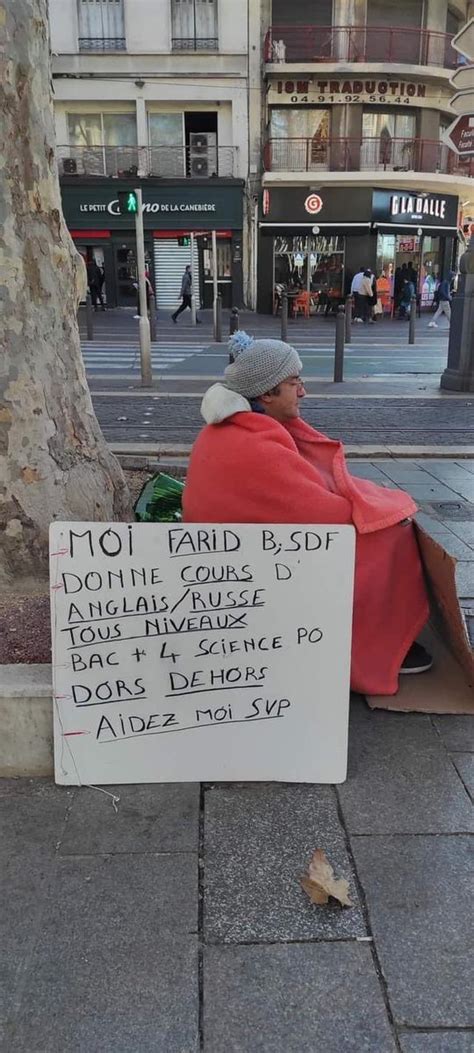 ISM TRADUCTION
04.91.92.56.44
LE PETIT CASINO DE LA CANEBIÈRE
G LA DALLE
MOI FARID B;SDF
DONNE COURS D'
ANGLAIS/RUSSE
TOUS NIVEAUX
BAC + 4 SCIENCE PO
DORS DEHORS
AIDEZ MOI SVP